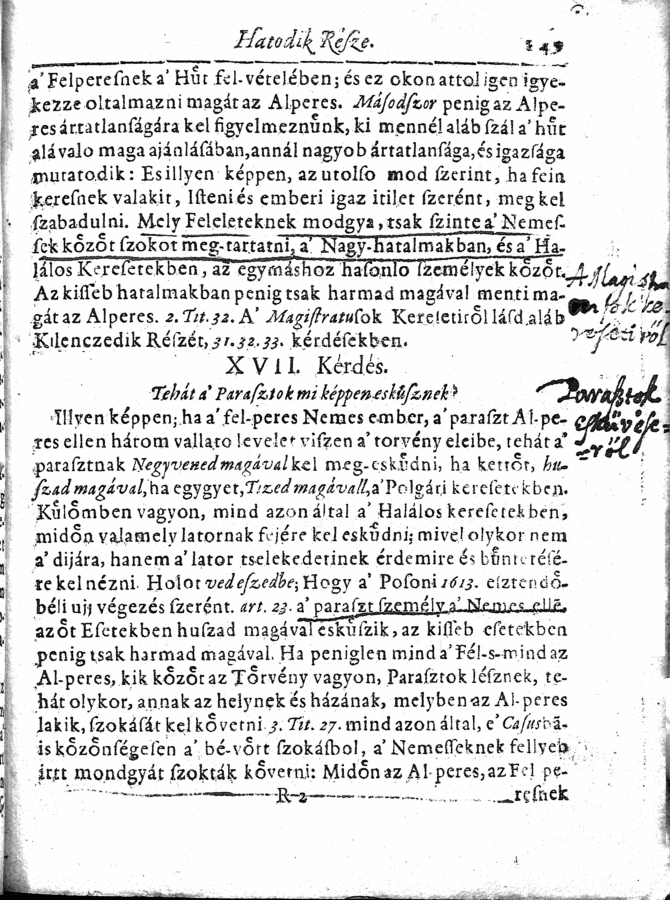 Hatodik Réſze. 149
a' Felpereſnek a' Hűt fel-vételében; és ez okon attol igen igye-
kezze oltalmazni magát az Alperes. Máſodſzor penig az Alpe-
res ártatlanſágára kel figyelmeznůnk, ki mennél aláb ſzál a' hůt
alá valo maga ajánlásában, annál nagyob ártatlanſága, és igazſága
mutatodik: Es illyen képpen, az utolſo mod ſzerint, ha ſein
kereſnek valakit, Iſteni és emberi igaz itilet ſzerént, meg kel
ſzabadulni. Mely Feleleteknek modgya, tsak ſzinte a' Nemeſ-
ſek kȯzȯt ſzokot meg-tartatni, a' Nagy-hatalmakban, és a' Ha-
lálos Kereſetekben, az egymáshoz haſonlo ſzemélyek kȯzȯt.
Az kiſſeb hatalmakban penig tsak harmad magával menti ma-
gát az Alperes. 2. Tit. 32. A' Magiſtratuſok Kereſetiről láſd aláb
Kilenczedik Részét, 31. 32. 33. kérdéſekben.
XVII. Kérdés.
Tehát a' Paraſztok mi képpen eskůſznek?
Illyen képpen; ha a' fel-peres Nemes ember, a' paraſzt Al-pe-
res ellen három vallato levelet viſzen a' torvény eleibe, tehát a'
paraſztnak Negyvened magával kel meg-eskůdni, ha kettȯt, hu-
ſzad magával, ha egygyet, Tized magávall, a' Polgári kereſetekben.
Kůlȯmben vagyon, mind azon által a' Halálos kereſetekben,
midȯn valamely latornak fejére kel eskůdni; mivel olykor nem
a' dijára, hanem a' lator tselekedetinek érdemire és bůntetésé-
re kel nézni. Holot ved eſzedbe; Hogy a' Poſoni 1613. eſztendȯ-
béli uij végezés ſzerént. art. 23. a' paraſzt ſzemély a' Nemes ellẽ,
azȯt Eſetekben huſzad magával eskůſzik, az kiſſeb eſetekben
penig tsak harmad magával. Ha peniglen mind a' Fél-s-mind az
Al-peres, kik kȯzȯt az Tȯrvény vagyon, Paraſztok léſznek, te-
hát olykor, annak az helynek és házának, melyben az Al-peres
lakik, ſzokáſát kel kȯvetni 3. Tit. 27. mind azon által, e' Casusbã-
is kȯzȯnségeſen a' bé-vȯtt ſzokásbol, a' Nemeſſeknek fellyeb
irtt mondgyát ſzokták kȯvetni: Midȯn az Al-peres, az Fel pe-
R 2 resnek
Paraſztok
esküvése-
ről